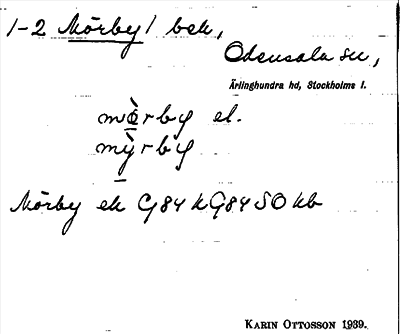 1-2 Mörby/ bek,
Odensala sn,
Ärlinghundra hd, Stockholms l.
mœ̀rby el.
mỳrby
Mörby ek G84 k G84 SO kb
KARIN OTTOSSON 1939.